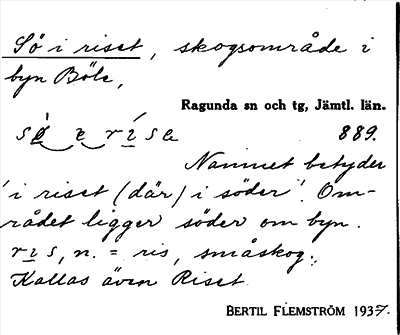 Sö i riset, skogsområde i
byn Böle,
Ragunda sn och tg, Jämtl. län.
sø̀ e rísa 889.
Namnet betyder
'i riset (där) i söder'. Om-
rådet ligger söder om byn.
rɪs, n. = ris, småskog.
Kallas även Riset
BERTIL FLEMSTRÖM 1937.